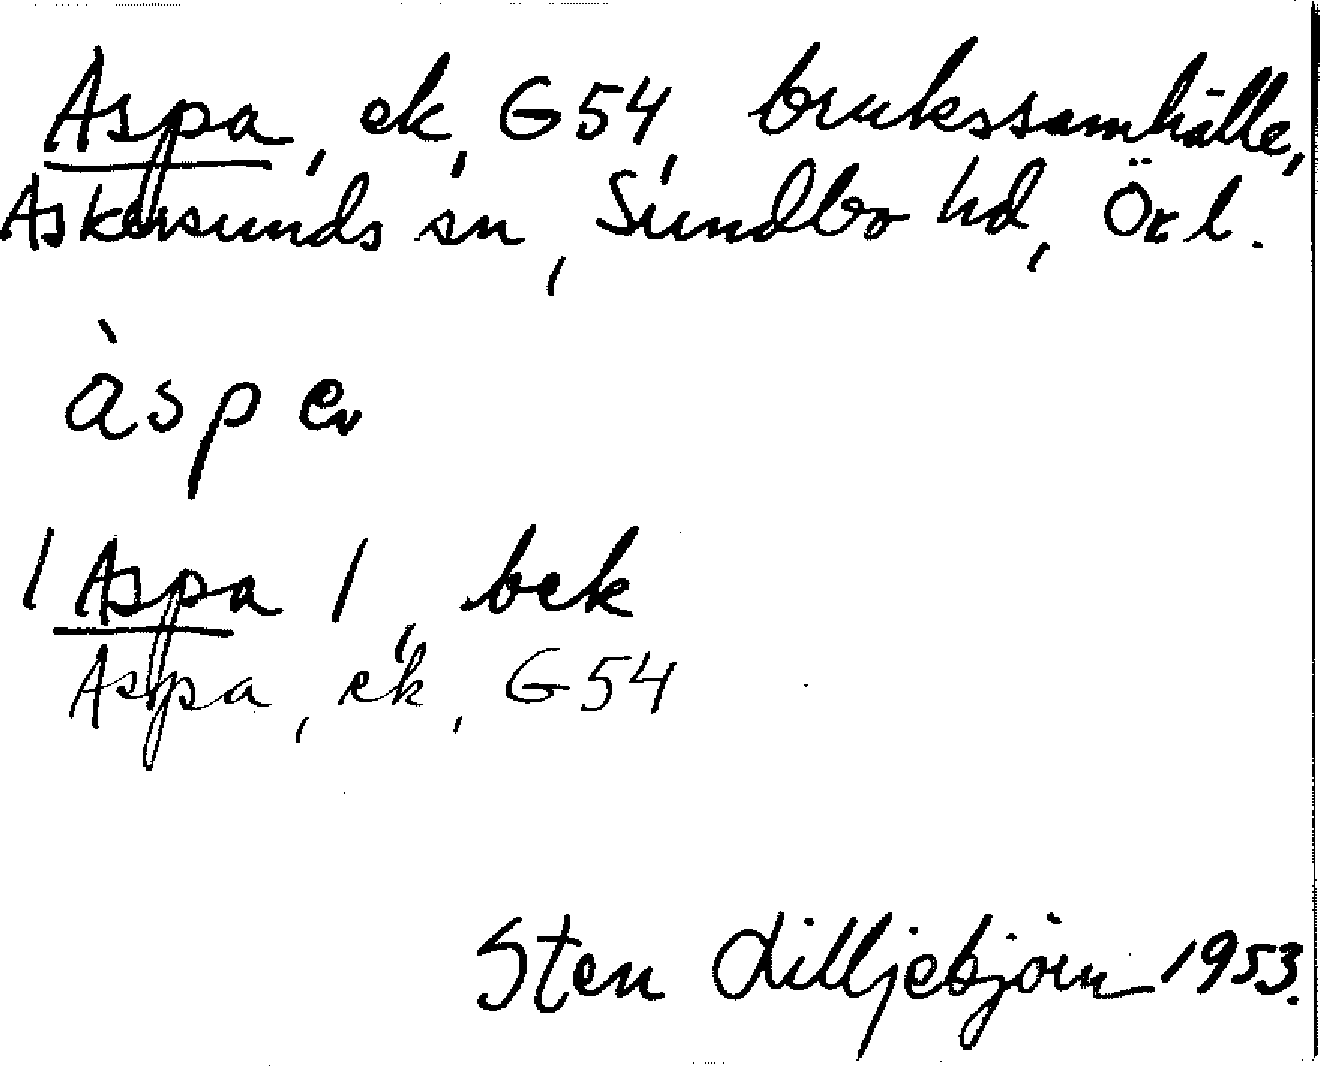 Aspa, ek, G54, brukssamhälle,
Askersunds sn, Sundbo hd, Ör l.
àspe
/Aspa/, bek
Aspa, ek, G54
Sten Lilljebjörn 1953.